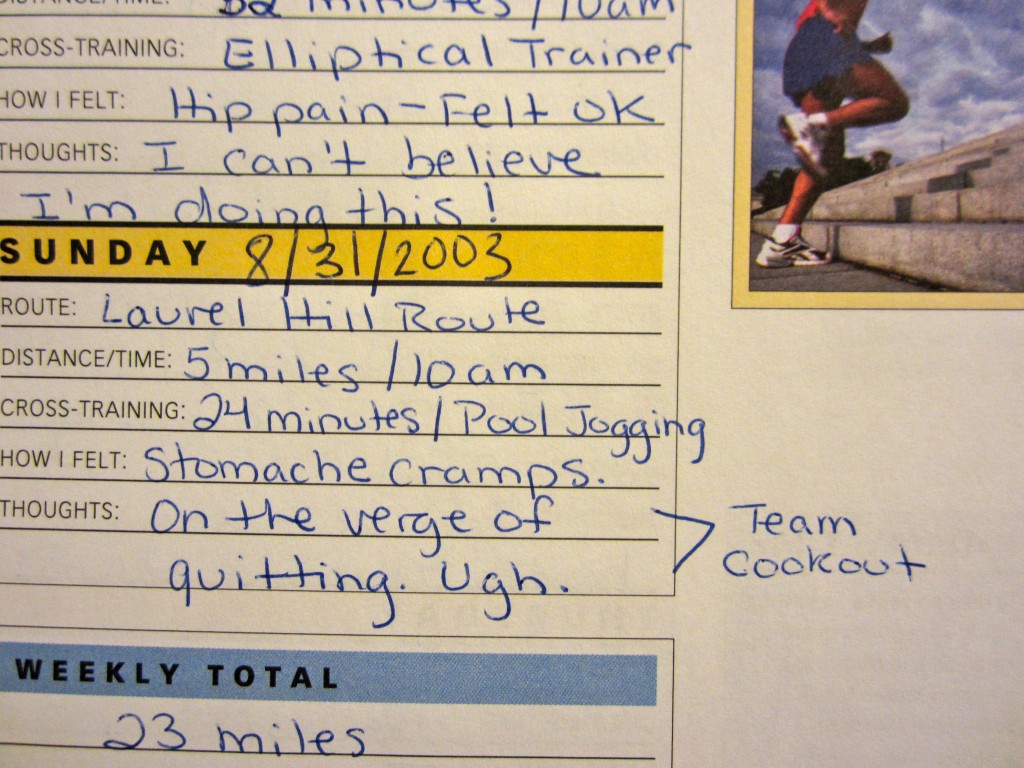 DISTANCE/TIME: 32 minutes/10am
CROSS-TRAINING: Elliptical Trainer
HOW I FELT: Hip pain - Felt OK
THOUGHTS: I can't believe
I'm doing this!
SUNDAY 8/31/2003
ROUTE: Laurel Hill Route
DISTANCE/TIME: 5 miles /10am
CROSS-TRAINING: 24 minutes/Pool Jogging
HOW I FELT: Stomache cramps.
THOUGHTS: On the verge of
quitting. Ugh.
Team
Cookout
WEEKLY TOTAL
23 miles